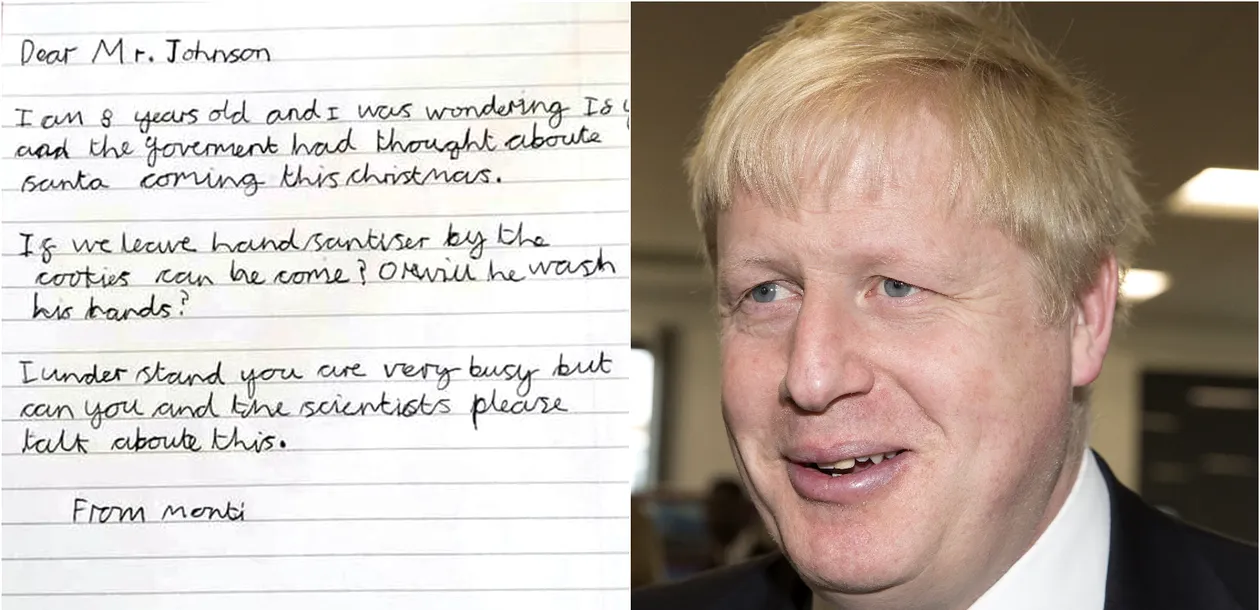 Dear Mr. Johnson
I am 8 years old and I was wondering If
and the goverment had thought aboute
santa coming this christmas.
If we leave hand santiser by the
cookies can he come? Or will he wash
his hands?
I under stand you are very busy but
can you and the scientists please
talk aboute this.
From monti